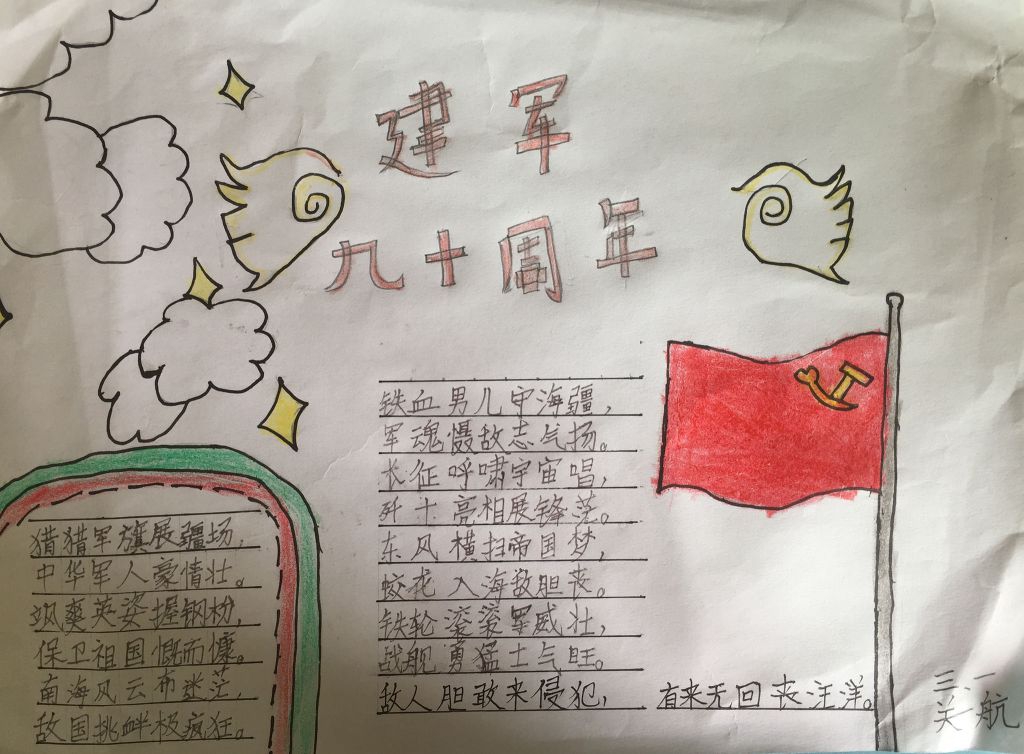 建军
九十周年
猎猎军旗展疆场,
中华军人豪情壮。
飒爽英姿握钢枪,
保卫祖国慨而慷。
南海风云布迷茫,
敌国挑衅极疯狂。
铁血男儿守海疆,
军魂慑敌志气扬。
长征呼啸宇宙唱,
歼十亮相展锋芒。
东风横扫帝国梦,
蛟龙入海敌胆丧。
铁轮滚滚军威壮,
战舰勇猛士气旺。
敌人胆敢来侵犯, 有来无回丧汪洋。
三、一
关一航